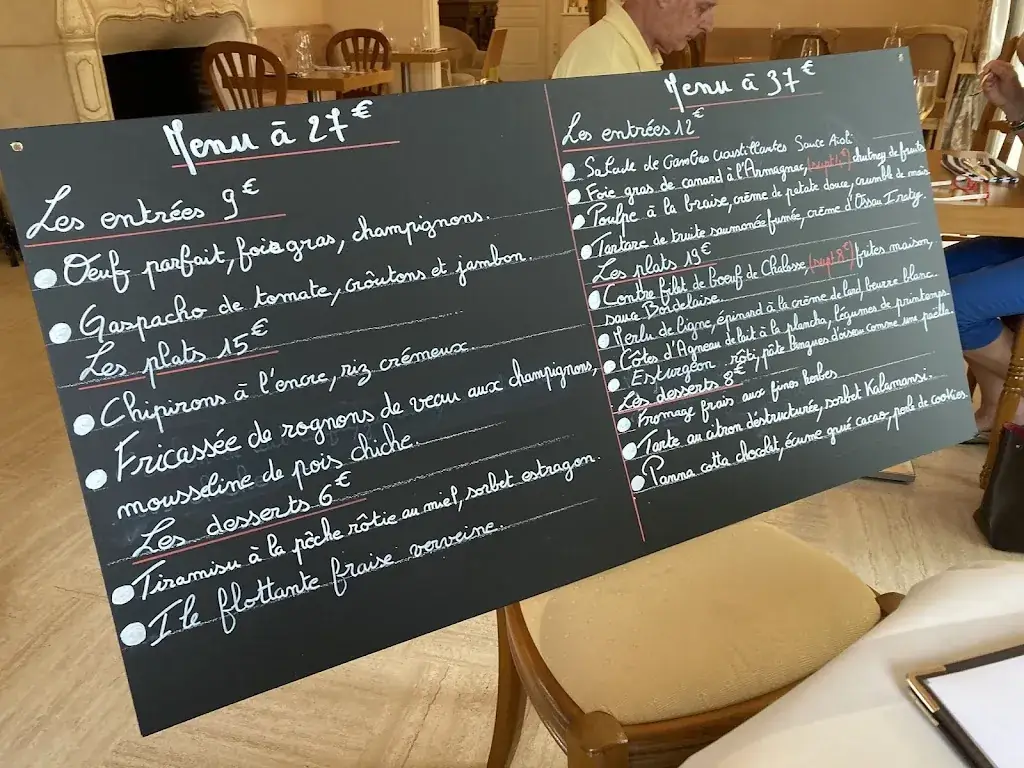 Menu à 27€
Les entrées 9€
Oeuf parfait, foie gras, champignons.
Gaspacho de tomate, croûtons et jambon.
Les plats 15€
Chipirons à l'encre, riz crémeux.
Fricassée de rognons de veau aux champignons,
mousseline de pois chiche.
Les desserts 6€
Tiramisu à la pêche rôtie au miel, sorbet estragon.
Ile flottante fraise verveine.
Menu à 37€
Les entrées 12€
Salade de Gambas croustillantes Sauce Aïoli
Foie gras de canard à l'Armagnac, chutney de fruits
Poulpe à la braise, crème de patate douce, crumble de maïs
Tartare de truite saumonée fumée, crème d'Ossau Iraty.
Les plats 19€
Contre filet de boeuf de Chalosse, frites maison,
sauce Bordelaise.
Merlu de ligne, épinard à la crème de lard, beurre blanc.
Côtes d'Agneau de lait à la plancha, légumes de printemps
Esturgeon rôti, pâte langues d'oiseau comme une paëlla.
Les desserts 8€
Fromage frais aux fines herbes
Tarte au citron déstructurée, sorbet Kalamansi.
Panna cotta chocolat, écume grué cacao, perle de cookies.